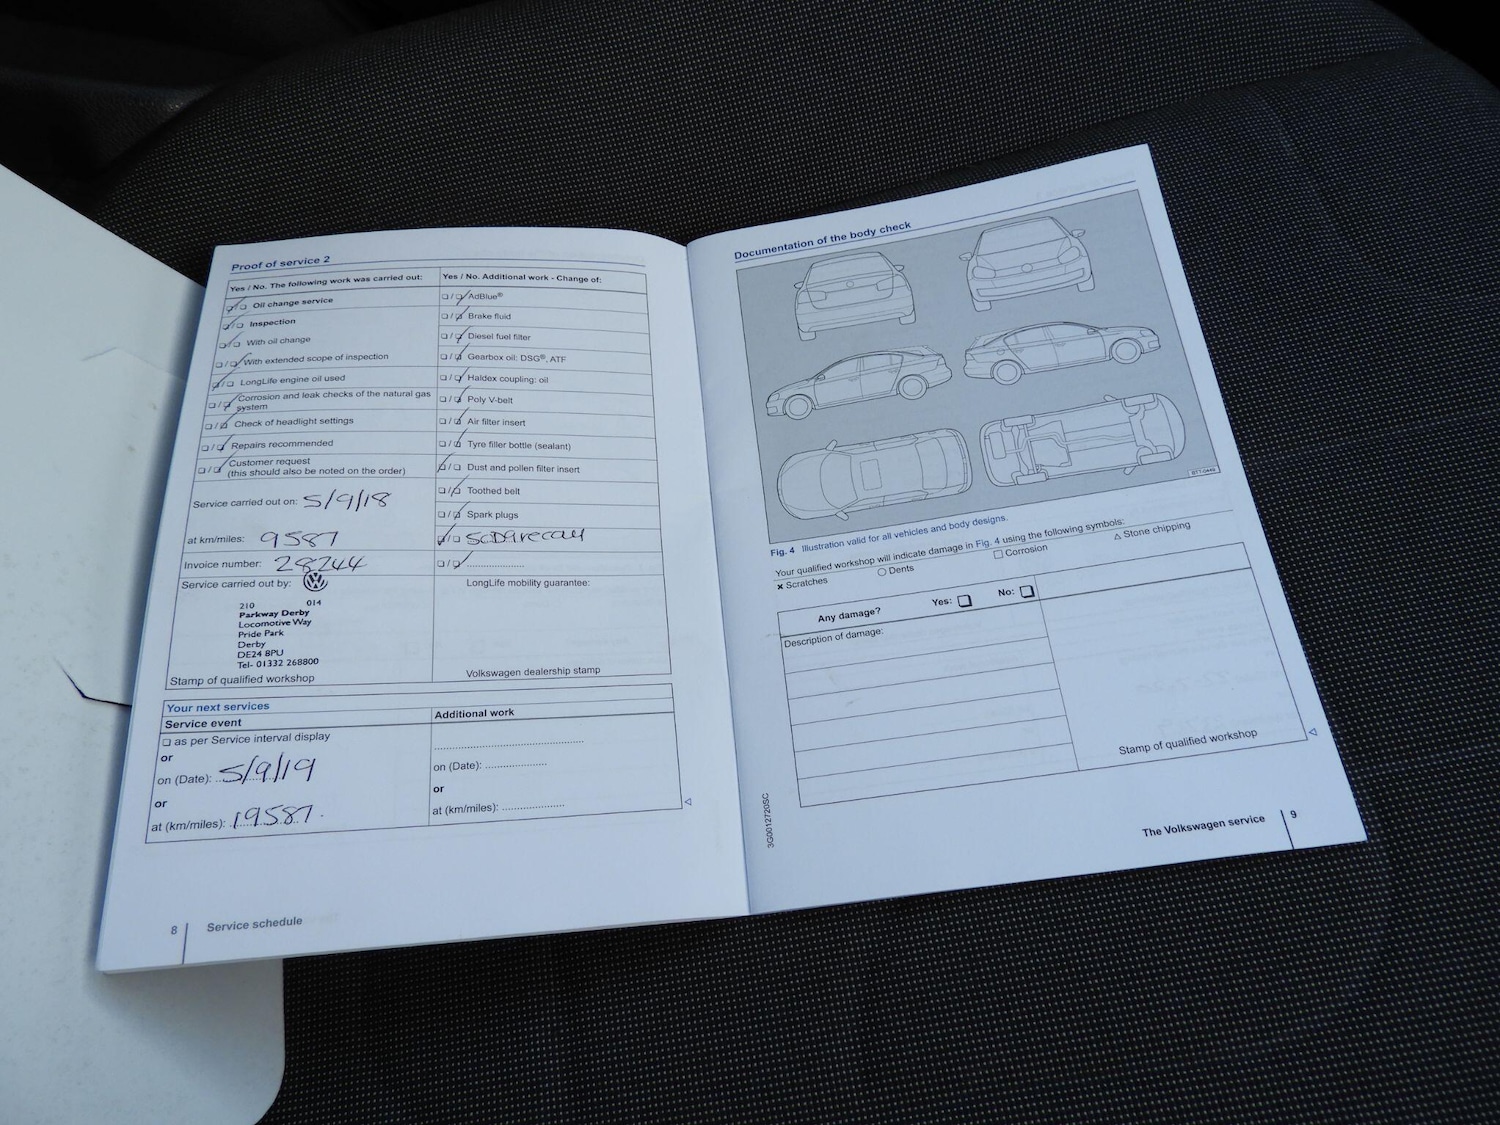 Proof of service 2
Yes / No. The following work was carried out:
Oil change service
Inspection
With oil change
With extended scope of inspection
LongLife engine oil used
Corrosion and leak checks of the natural gas
system
Check of headlight settings
Repairs recommended
Customer request
(this should also be noted on the order)
Service carried out on: 5/9/18
at km/miles: 9587
Invoice number: 28244
Service carried out by:
210 014
Parkway Derby
Locomotive Way
Pride Park
Derby
DE24 8PU
Tel- 01332 268800
Stamp of qualified workshop
Yes / No. Additional work - Change of:
AdBlue®
Brake fluid
Diesel fuel filter
Gearbox oil: DSG®, ATF
Haldex coupling: oil
Poly V-belt
Air filter insert
Tyre filler bottle (sealant)
Dust and pollen filter insert
Toothed belt
Spark plugs
LongLife mobility guarantee:
Volkswagen dealership stamp
Your next services
Service event
as per Service interval display
or
on (Date): 5/9/19
or
at (km/miles): 19587.
Additional work
on (Date):
or
at (km/miles):
8 Service schedule
Documentation of the body check
BTT-0449
Fig. 4 Illustration valid for all vehicles and body designs.
Your qualified workshop will indicate damage in Fig. 4 using the following symbols:
× Scratches ○ Dents □ Corrosion △ Stone chipping
Any damage? Yes: No:
Description of damage:
Stamp of qualified workshop
3G0012720SC
The Volkswagen service 9